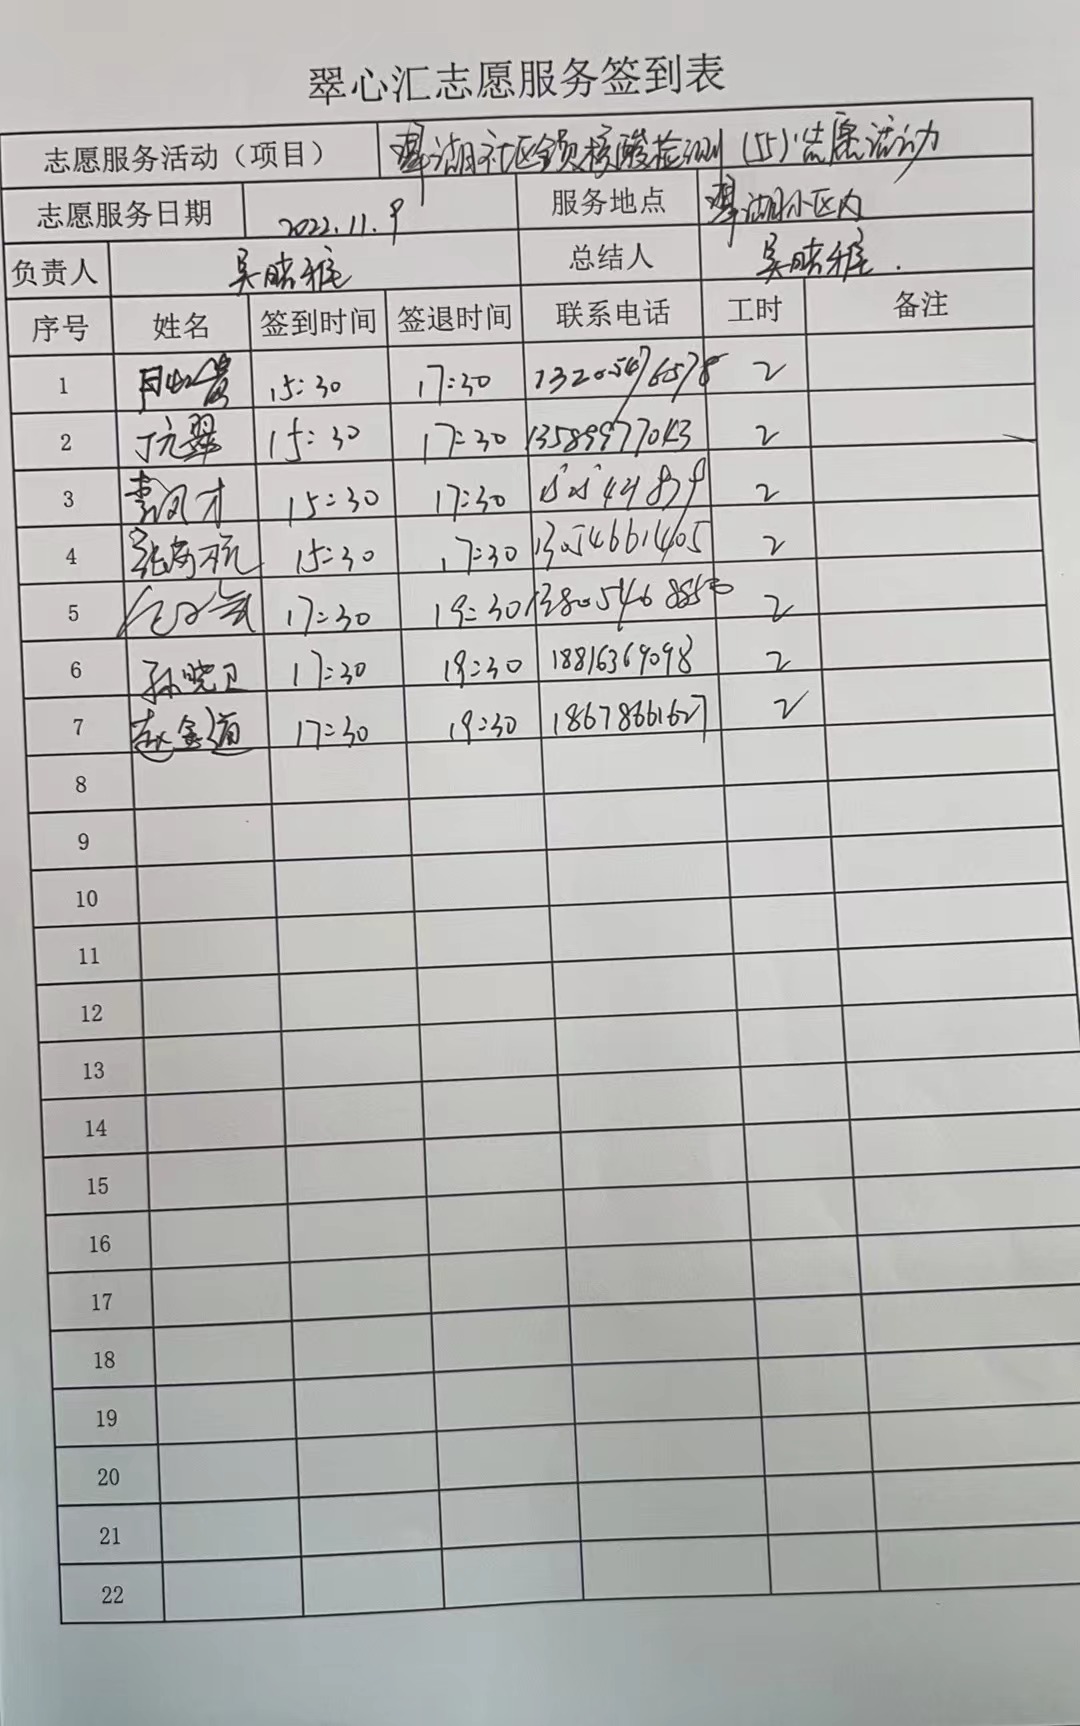 翠心汇志愿服务签到表
志愿服务活动（项目） 翠湖社区全员核酸检测（15）志愿活动
志愿服务日期 2022.11.9 服务地点 翠湖小区内
负责人 吴 总结人 吴
序号 姓名 签到时间 签退时间 联系电话 工时 备注
1 15:30 17:30 13205476578 2
2 丁元翠 15:30 17:30 2
3 李汉才 15:30 17:30 2
4 15:30 17:30 13054661405 2
5 17:30 19:30 2
6 孙晓卫 17:30 19:30 18816369098 2
7 赵金道 17:30 19:30 18678661627 2
8
9
10
11
12
13
14
15
16
17
18
19
20
21
22